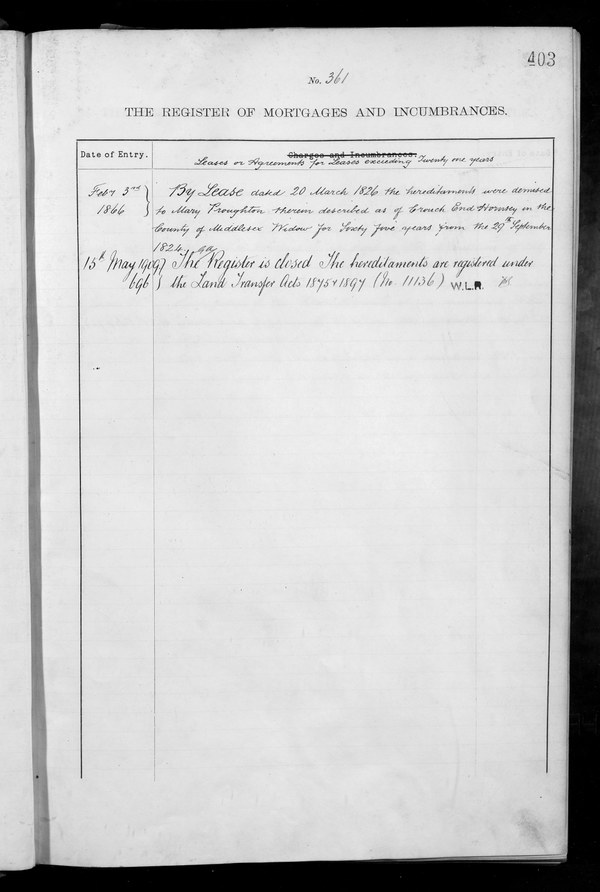 403
No. 361
THE REGISTER OF MORTGAGES AND INCUMBRANCES.
Date of Entry.
Charges and Incumbrances.
Leases or Agreements for Leases exceeding Twenty one years
Feby 3rd 1866
By Lease dated 20 March 1826 the hereditaments were demised
to Mary Proughton therein described as of Crouch End Hornsey in the
County of Middlesex Widow for Sixty five years from the 29th September
1824.
15th May 1909
696
The Register is closed The hereditaments are registered under
the Land Transfer Acts 1875 & 1897 (No. 11136) W.L.R.